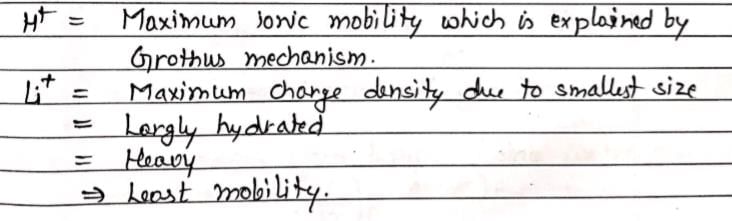 H⁺ = Maximum ionic mobility which is explained by
Grothus mechanism.
Li⁺ = Maximum charge density due to smallest size
= Largly hydrated
= Heavy
⇒ Least mobility.